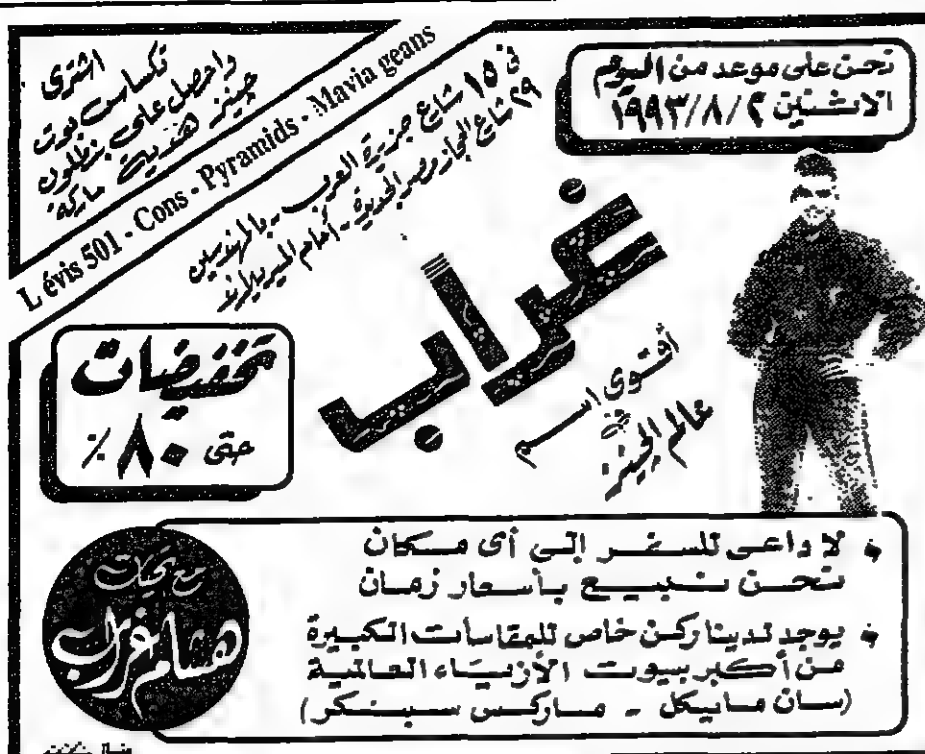 نحن على موعد من اليوم
الاثنين ١٩٩٣/٨/٢
اشترى
تكساس بوت
واحصل على بنطلون
جينز هدية ماركة
Lévis 501 - Cons - Pyramids - Mavia geans
فى ١٥ شارع جزيرة العرب - بالمهندسين
٢٩ شارع الحجاز بمصر الجديدة - أمام الميريلاند
غراب
أقوى اسم
فى
عالم الجينز
تخفيضات
حتى ٨٠٪
لا داعى للسفر إلى أى مكان
نحن نبيع بأسعار زمان
يوجد لدينا ركن خاص للمقاسات الكبيرة
من أكبر بيوت الأزياء العالمية
(سان مايكل - ماركس سبنكر)
مع تحيات
هشام غراب